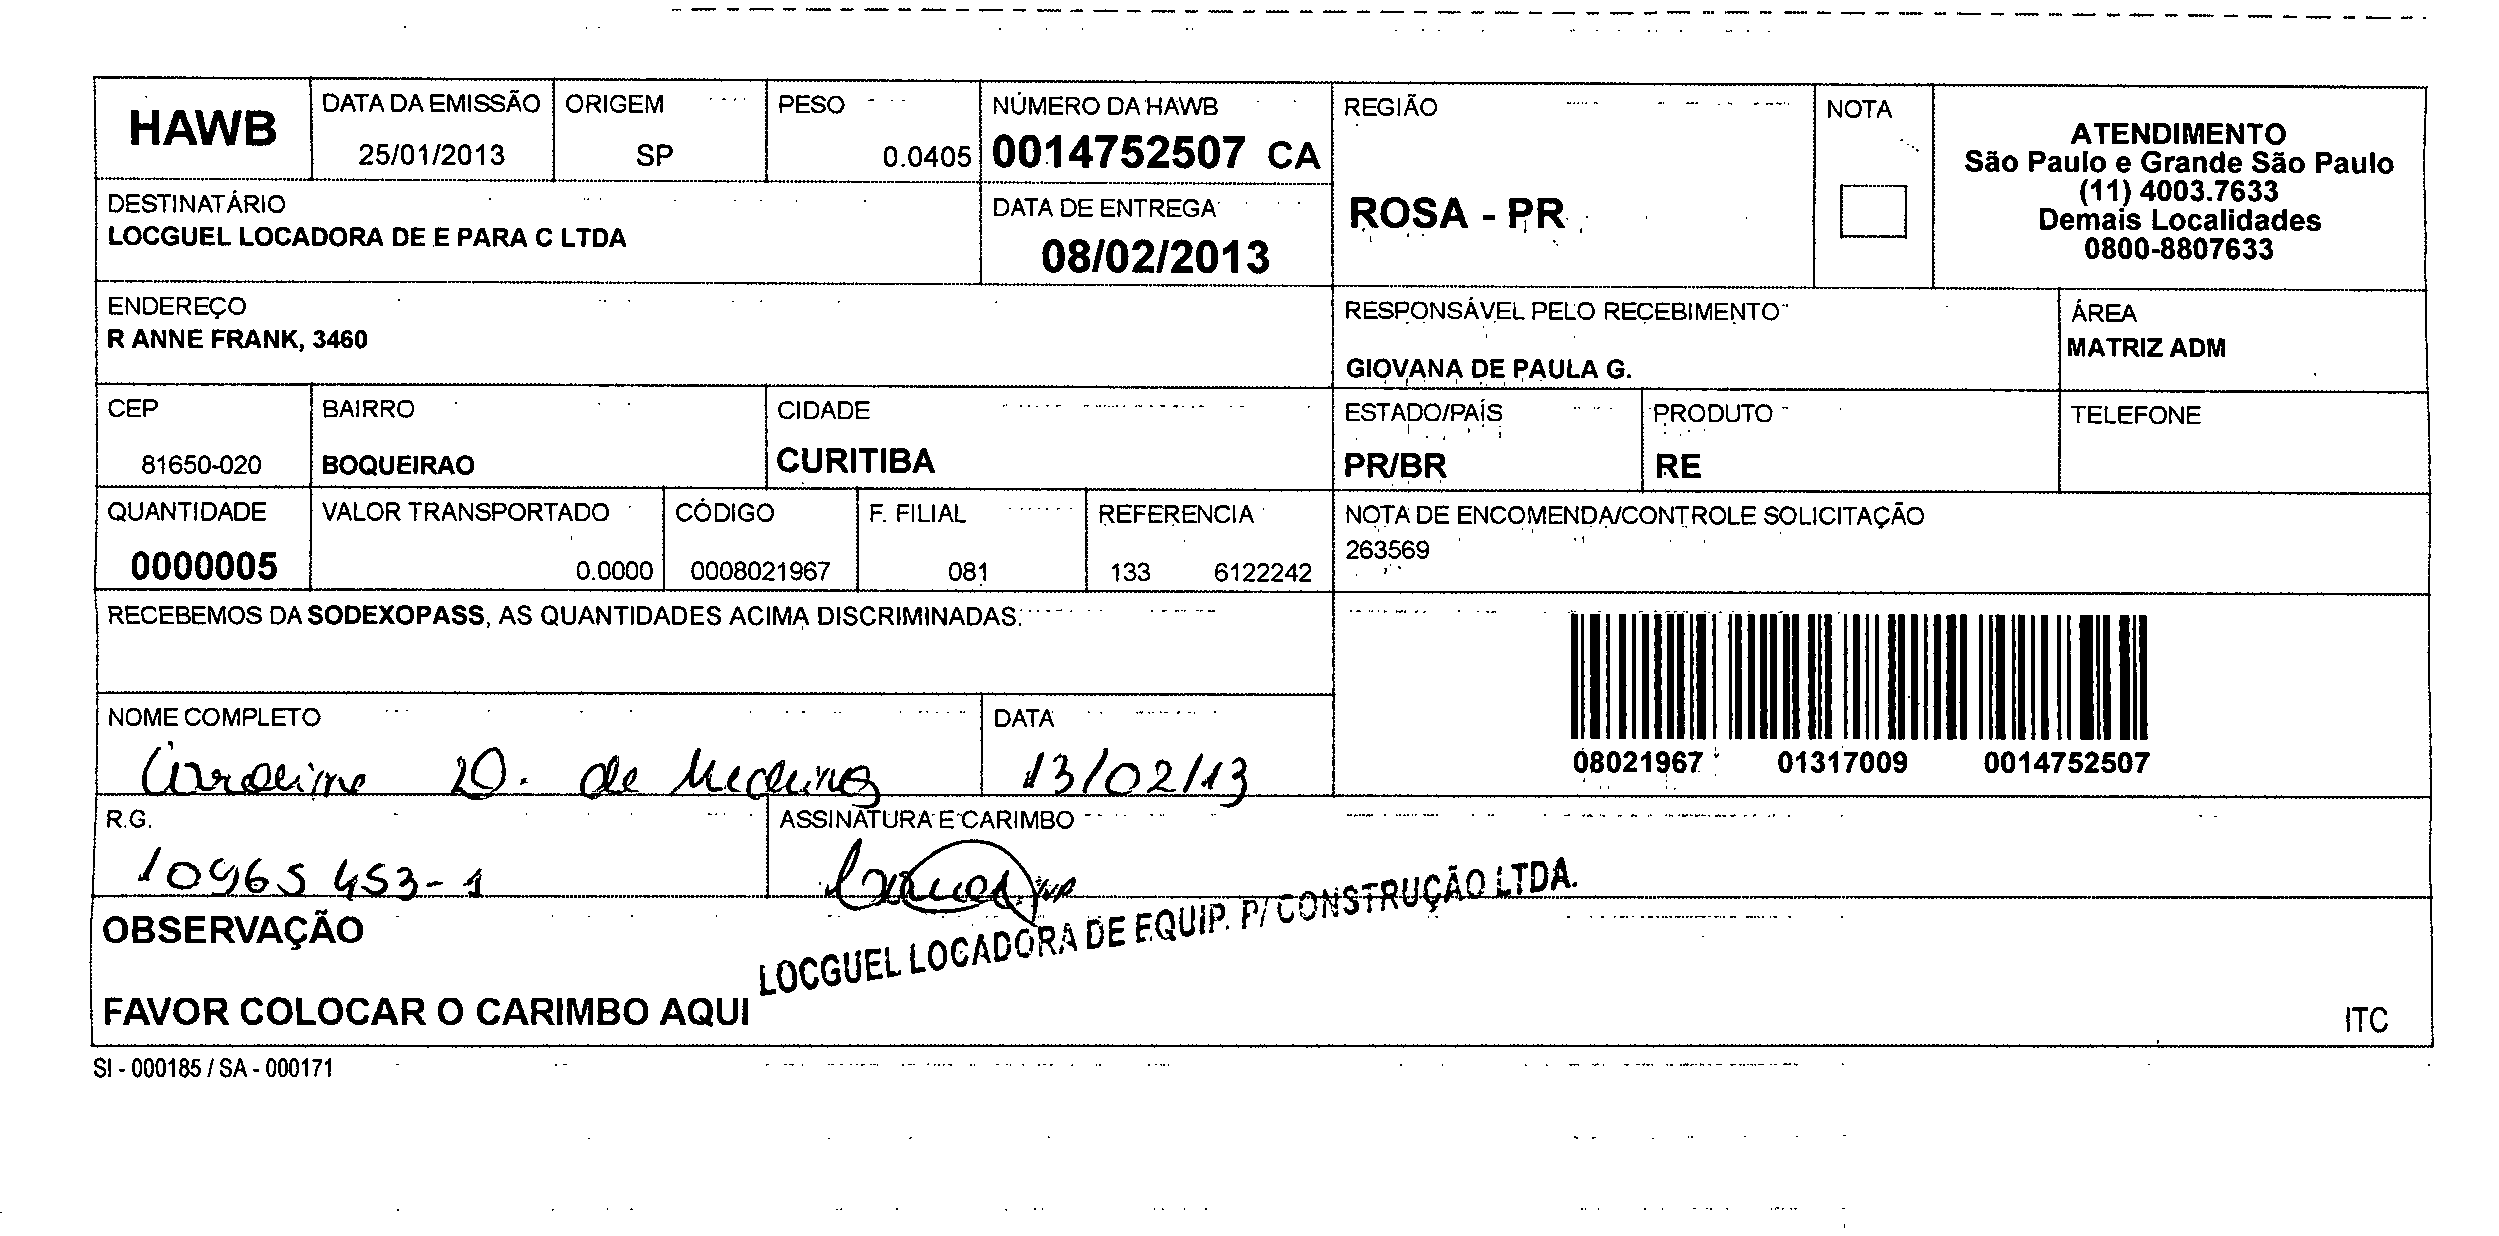 HAWB
DATA DA EMISSÃO
25/01/2013
ORIGEM
SP
PESO
0.0405
NÚMERO DA HAWB
0014752507 CA
REGIÃO
ROSA - PR
NOTA
ATENDIMENTO
São Paulo e Grande São Paulo
(11) 4003.7633
Demais Localidades
0800-8807633
DESTINATÁRIO
LOCGUEL LOCADORA DE E PARA C LTDA
DATA DE ENTREGA
08/02/2013
ENDEREÇO
R ANNE FRANK, 3460
RESPONSÁVEL PELO RECEBIMENTO
GIOVANA DE PAULA G.
ÁREA
MATRIZ ADM
CEP
81650-020
BAIRRO
BOQUEIRAO
CIDADE
CURITIBA
ESTADO/PAÍS
PR/BR
PRODUTO
RE
TELEFONE
QUANTIDADE
0000005
VALOR TRANSPORTADO
0.0000
CÓDIGO
0008021967
F. FILIAL
081
REFERENCIA
133 6122242
NOTA DE ENCOMENDA/CONTROLE SOLICITAÇÃO
263569
RECEBEMOS DA SODEXOPASS, AS QUANTIDADES ACIMA DISCRIMINADAS.
08021967 01317009 0014752507
NOME COMPLETO
Caroline D. de Medeiros
DATA
13/02/13
R.G.
10965453-1
ASSINATURA E CARIMBO
LOCGUEL LOCADORA DE EQUIP. P/ CONSTRUÇÃO LTDA.
OBSERVAÇÃO
FAVOR COLOCAR O CARIMBO AQUI
ITC
SI - 000185 / SA - 000171